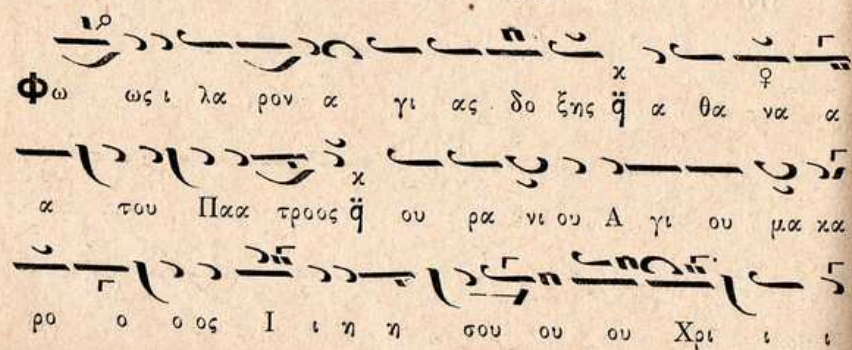 Φω ως ι λα ρον α γι ας δο ξης q̈ α θα να α
α του Παα τροος q̈ ου ρα νι ου Α γι ου μα κα
ρο ο ο ος Ι ι η η σου ου ου Χρι ι ι